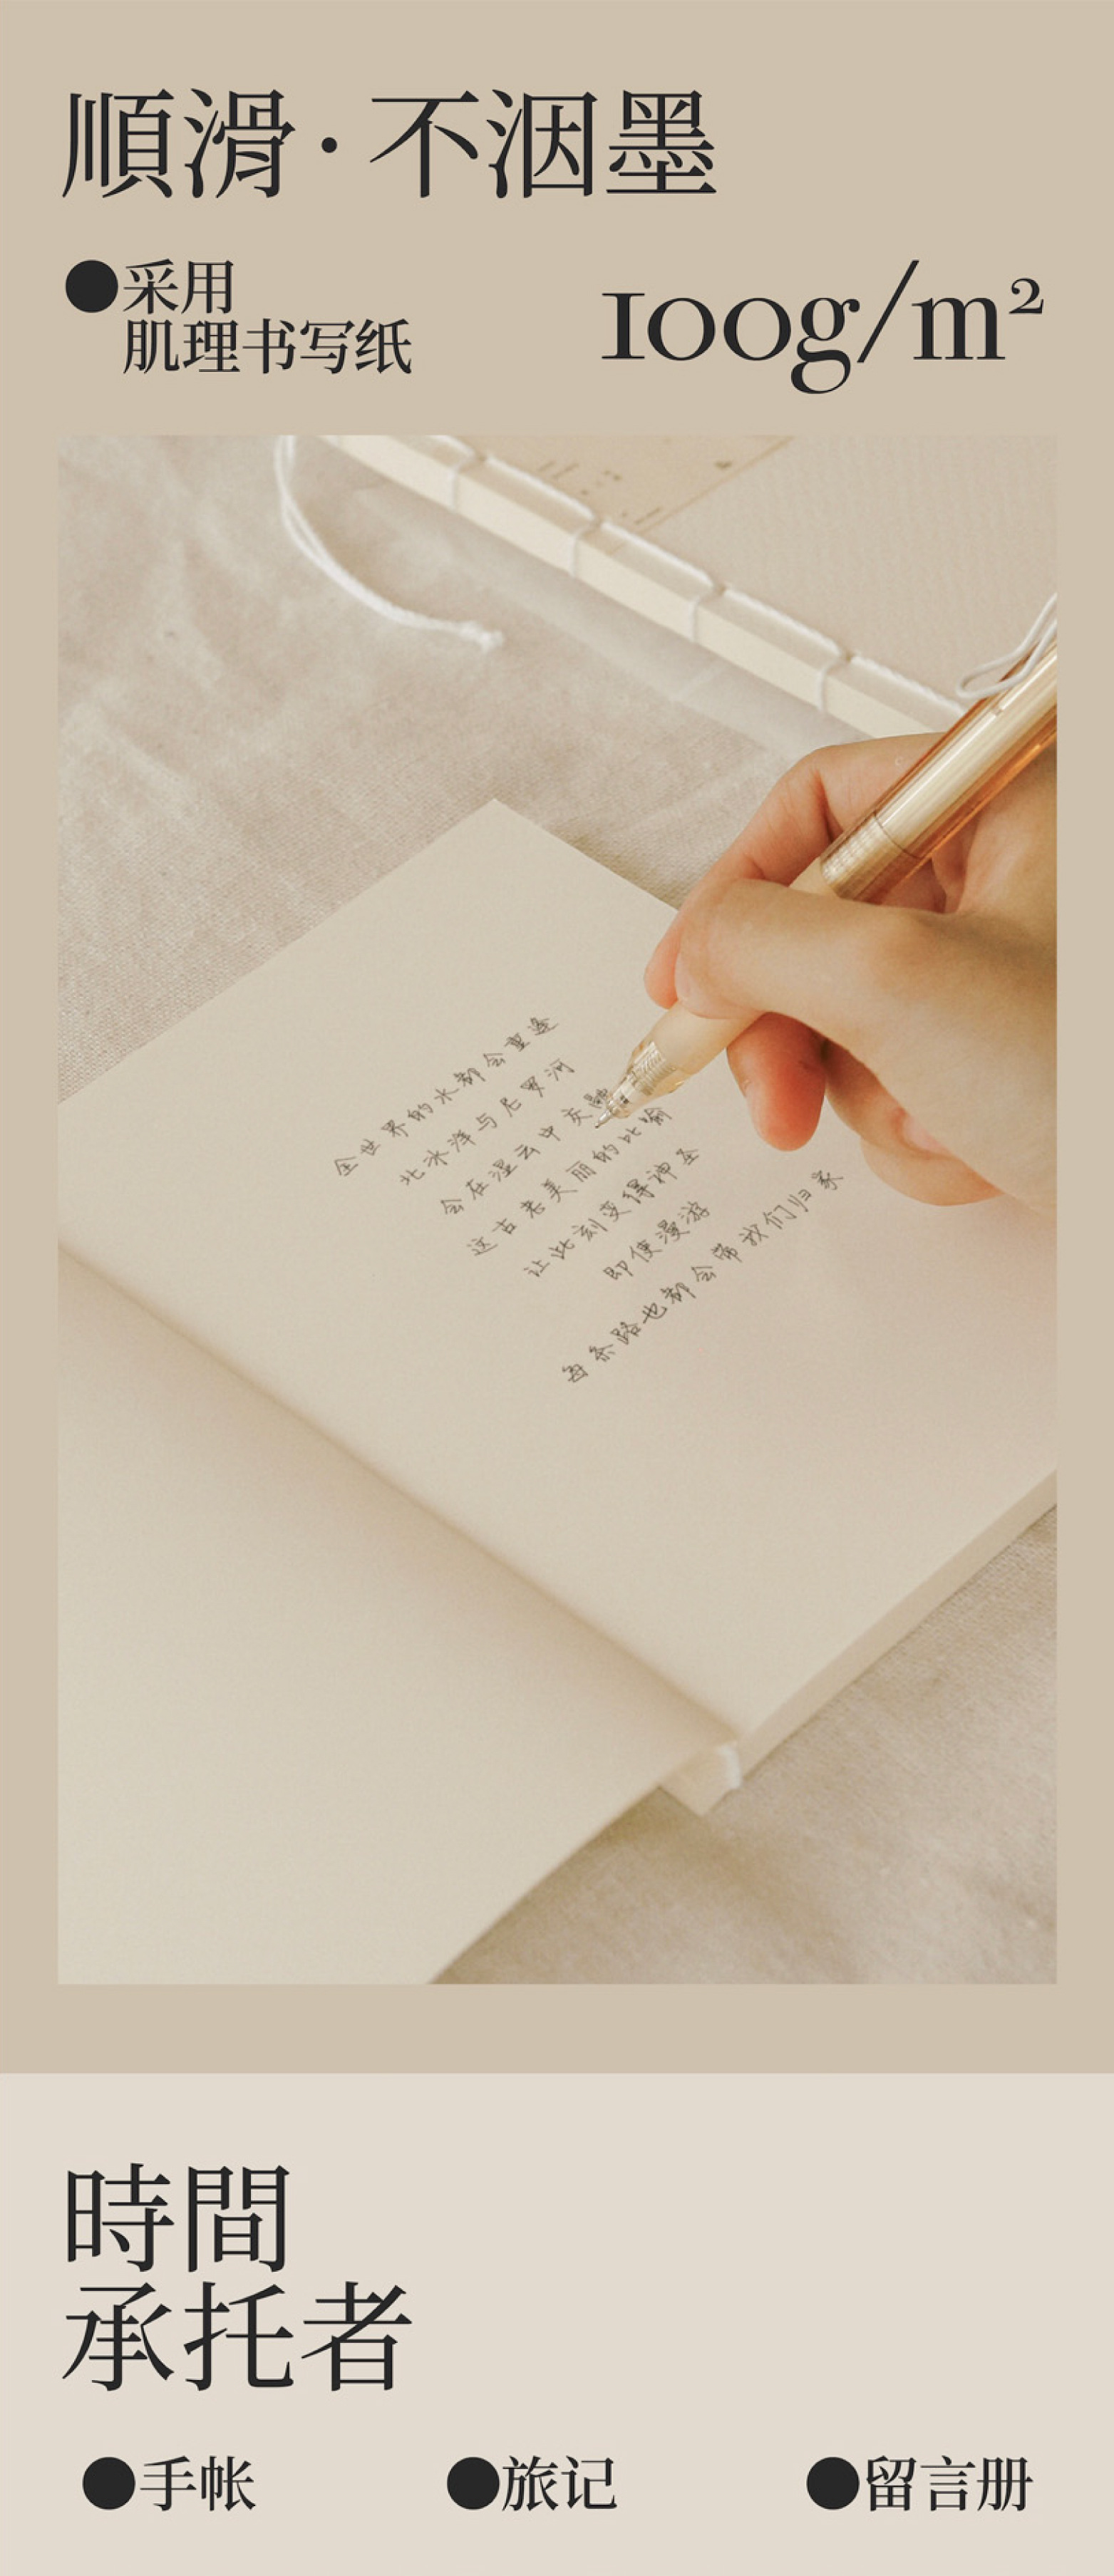 順滑·不洇墨
●采用
肌理书写纸
100g/m²
全世界的水都会重逢
北冰洋与尼罗河
会在湿云中交融
这古老美丽的比喻
让此刻变得神圣
即使漫游
每条路也都会带我们归家
時間
承托者
●手帐
●旅记
●留言册